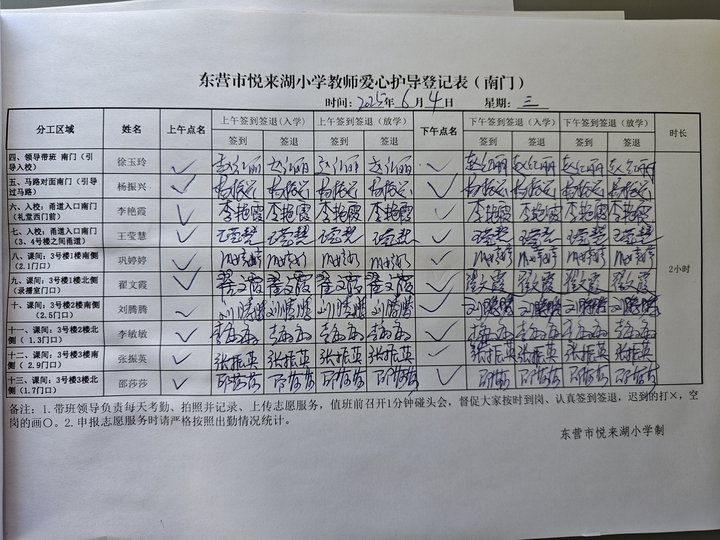 东营市悦来湖小学教师爱心护导登记表（南门）
时间：2025年6月4日 星期：三
分工区域 姓名 上午点名 上午签到签退（入学） 上午签到签退（放学） 下午点名 下午签到签退（入学） 下午签到签退（放学） 时长
签到 签退 签到 签退 签到 签退 签到 签退
四、领导带班 南门（引导入校） 徐玉玲 ✓ ✓
五、马路对面南门（引导过马路） 杨振兴 ✓ 杨振兴 杨振兴 杨振兴 杨振兴 ✓ 杨振兴 杨振兴 杨振兴 杨振兴
六、入校：甬道入口南门（礼堂西门前） 李艳霞 ✓ 李艳霞 李艳霞 李艳霞 李艳霞 ✓ 李艳霞 李艳霞 李艳霞 李艳霞
七、入校：甬道入口南门（3、4号楼之间甬道） 王莹慧 ✓ 王莹慧 王莹慧 王莹慧 王莹慧 ✓ 王莹慧 王莹慧 王莹慧 王莹慧
八、课间：3号楼1楼南侧（2.1门口） 巩婷婷 ✓ ✓
九、课间：3号楼1楼北侧（录播室门口） 翟文霞 ✓ 翟文霞 翟文霞 翟文霞 翟文霞 ✓ 翟文霞 翟文霞 翟文霞 翟文霞
2小时
十、课间：3号楼2楼南侧（2.5门口） 刘腾腾 ✓ 刘腾腾 刘腾腾 刘腾腾 刘腾腾 ✓ 刘腾腾 刘腾腾 刘腾腾 刘腾腾
十一、课间：3号楼2楼北侧（1.3门口） 李敏敏 ✓ 李敏敏 李敏敏 李敏敏 李敏敏 ✓ 李敏敏 李敏敏 李敏敏 李敏敏
十二、课间：3号楼3楼南侧（2.9门口） 张振英 ✓ 张振英 张振英 张振英 张振英 ✓ 张振英 张振英 张振英 张振英
十三、课间：3号楼3楼北侧（1.7门口） 邵莎莎 ✓ 邵莎莎 邵莎莎 邵莎莎 邵莎莎 ✓ 邵莎莎 邵莎莎 邵莎莎 邵莎莎
备注：1.带班领导负责每天考勤、拍照并记录、上传志愿服务，值班前召开1分钟碰头会，督促大家按时到岗、认真签到签退，迟到的打×，空
岗的画〇。2.申报志愿服务时请严格按照出勤情况统计。
东营市悦来湖小学制